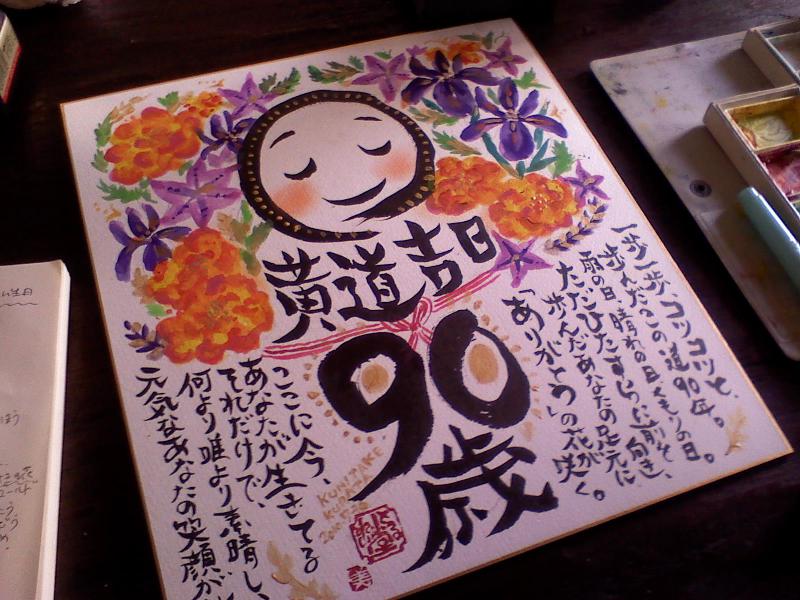 黄道吉日
90歳
一歩一歩、コツコツと、
歩んだこの道90年。
雨の日、晴れの日、くもりの日。
ただひたすらに前を向き、
歩んだあなたの足元に
「ありがとう」の花が咲く。
ここに今、
あなたが生きてる
それだけで、
何より誰より素晴しい、
元気なあなたの笑顔が
KUNITAKE
美